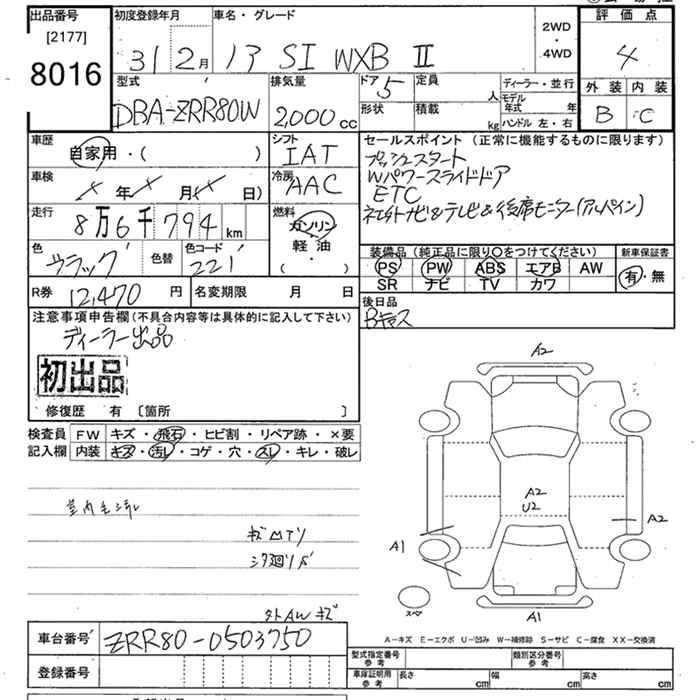 出品番号 初度登録年月 車名・グレード 評価点
[2177] 2WD
8016 31 2月 ノア SI WXB Ⅱ ・ 4WD 4
型式 排気量 ドア 5 定員 人 ディーラー・並行 外装 内装
DBA-ZRR80W 2,000cc 形状 積載 kg モデル年式 年 B C
ハンドル 左・右
車歴 シフト セールスポイント (正常に機能するものに限ります)
自家用・( ) IAT プッシュスタート
車検 冷房 Wパワースライドドア
年 月 日) AAC ETC
走行 燃料
8万6千794km ガソリン・軽油・( )
色 色替 色コード 装備品 (純正品に限り○をつけてください) 新車保証書
ブラック 221 PS PW ABS エアB AW 有・無
SR ナビ TV カワ
R券 12,470円 名変期限 月 日 後日品
注意事項申告欄(不具合内容等は具体的に記入して下さい)
ディーラー出品
初出品
修復歴 有 [箇所 ]
検査員 FW キズ・飛石・ヒビ割・リペア跡・×要
記入欄 内装 キズ・汚レ・コゲ・穴・スレ・キレ・破レ
A2
A2
U2
A1 A2
スペア
A1
車台番号 ZRR80-0503750
A-キズ E-エクボ U-凹み W-補修跡 S-サビ C-腐食 XX-交換済
登録番号 型式指定番号 参考 類別区分番号 参考
車庫証明用 参考 長さ cm 幅 cm 高さ cm